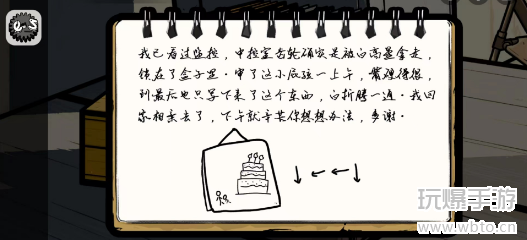 我已看过监控，中控室齿轮确实是被白高兴拿走，
锁在了盒子里。审了这小屁孩一上午，嘴硬得很，
到最后也只写下来了这个东西，白折腾一通。我回
家相亲去了，下午就辛苦你想想办法，多谢。
↓←←↓
玩爆手游
www.wbto.cn